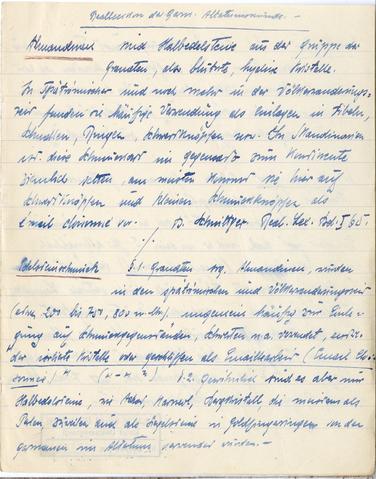 Reallexikon der Germ. Altertumskunde.-
Almandinen sind Halbedelsteine aus der Gruppe der
Granaten, also blutrote, Kristalle.
In Spätrömischer und noch mehr in der Völkerwanderungs-
zeit fanden sie häufige Verwendung als Einlagen in Fibeln,
Schnallen, Ringen, Schwertknöpfen usw. In Skandinavien
ist diese Schmuckart im gegensatz zum Kontinente
ziemlich selten, am meisten kommt sie hier auf
Schwertknöpfen und kleinen Schmuckknöpfen als
Email cloisonné vor. B. Schnittger Real. Lex. Bd. I 65.
Edelsteinschmuck S.1. Granaten sog. Almandinen, wurden
in den spätrömischen und Völkerwanderungszeit
(etwa 200 bis 700, 800 n. Chr.) ungemein häufig zur Einle-
gung auf Schmuckgegenständen, Schwertern u.a. verwendet,
rötliche Kristalle oder geschliffen als (Email Clo-
isonné)
S.2. Gewöhnlich sind es aber nur
Halbedelsteine, wie Achat, Karneol, Bergkristall, die meistens als
Perlen, und als in Goldfingerringen von den
germanen im Altertum verwendet wurden.-